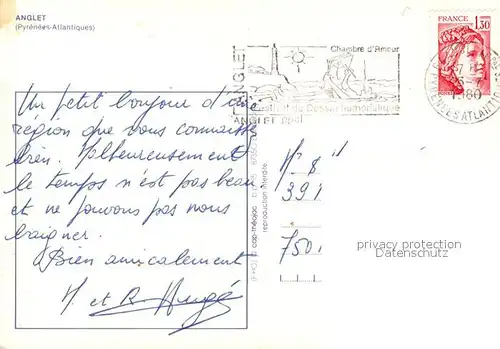 ANGLET
(Pyrénées-Atlantiques)
FRANCE
1,30
Chambre d'Amour
ANGLET
du Dessin humoristique
ANGLET Ppal
Un petit bonjour d'une
région que vous connaissez
bien. Malheureusement
le temps n'est pas beau
et ne pouvons pas nous
baigner.
Bien amicalement
M. et R. Hugé
Mr 8
391
7501
cap-théojac
reproduction interdite
privacy protection
Datenschutz